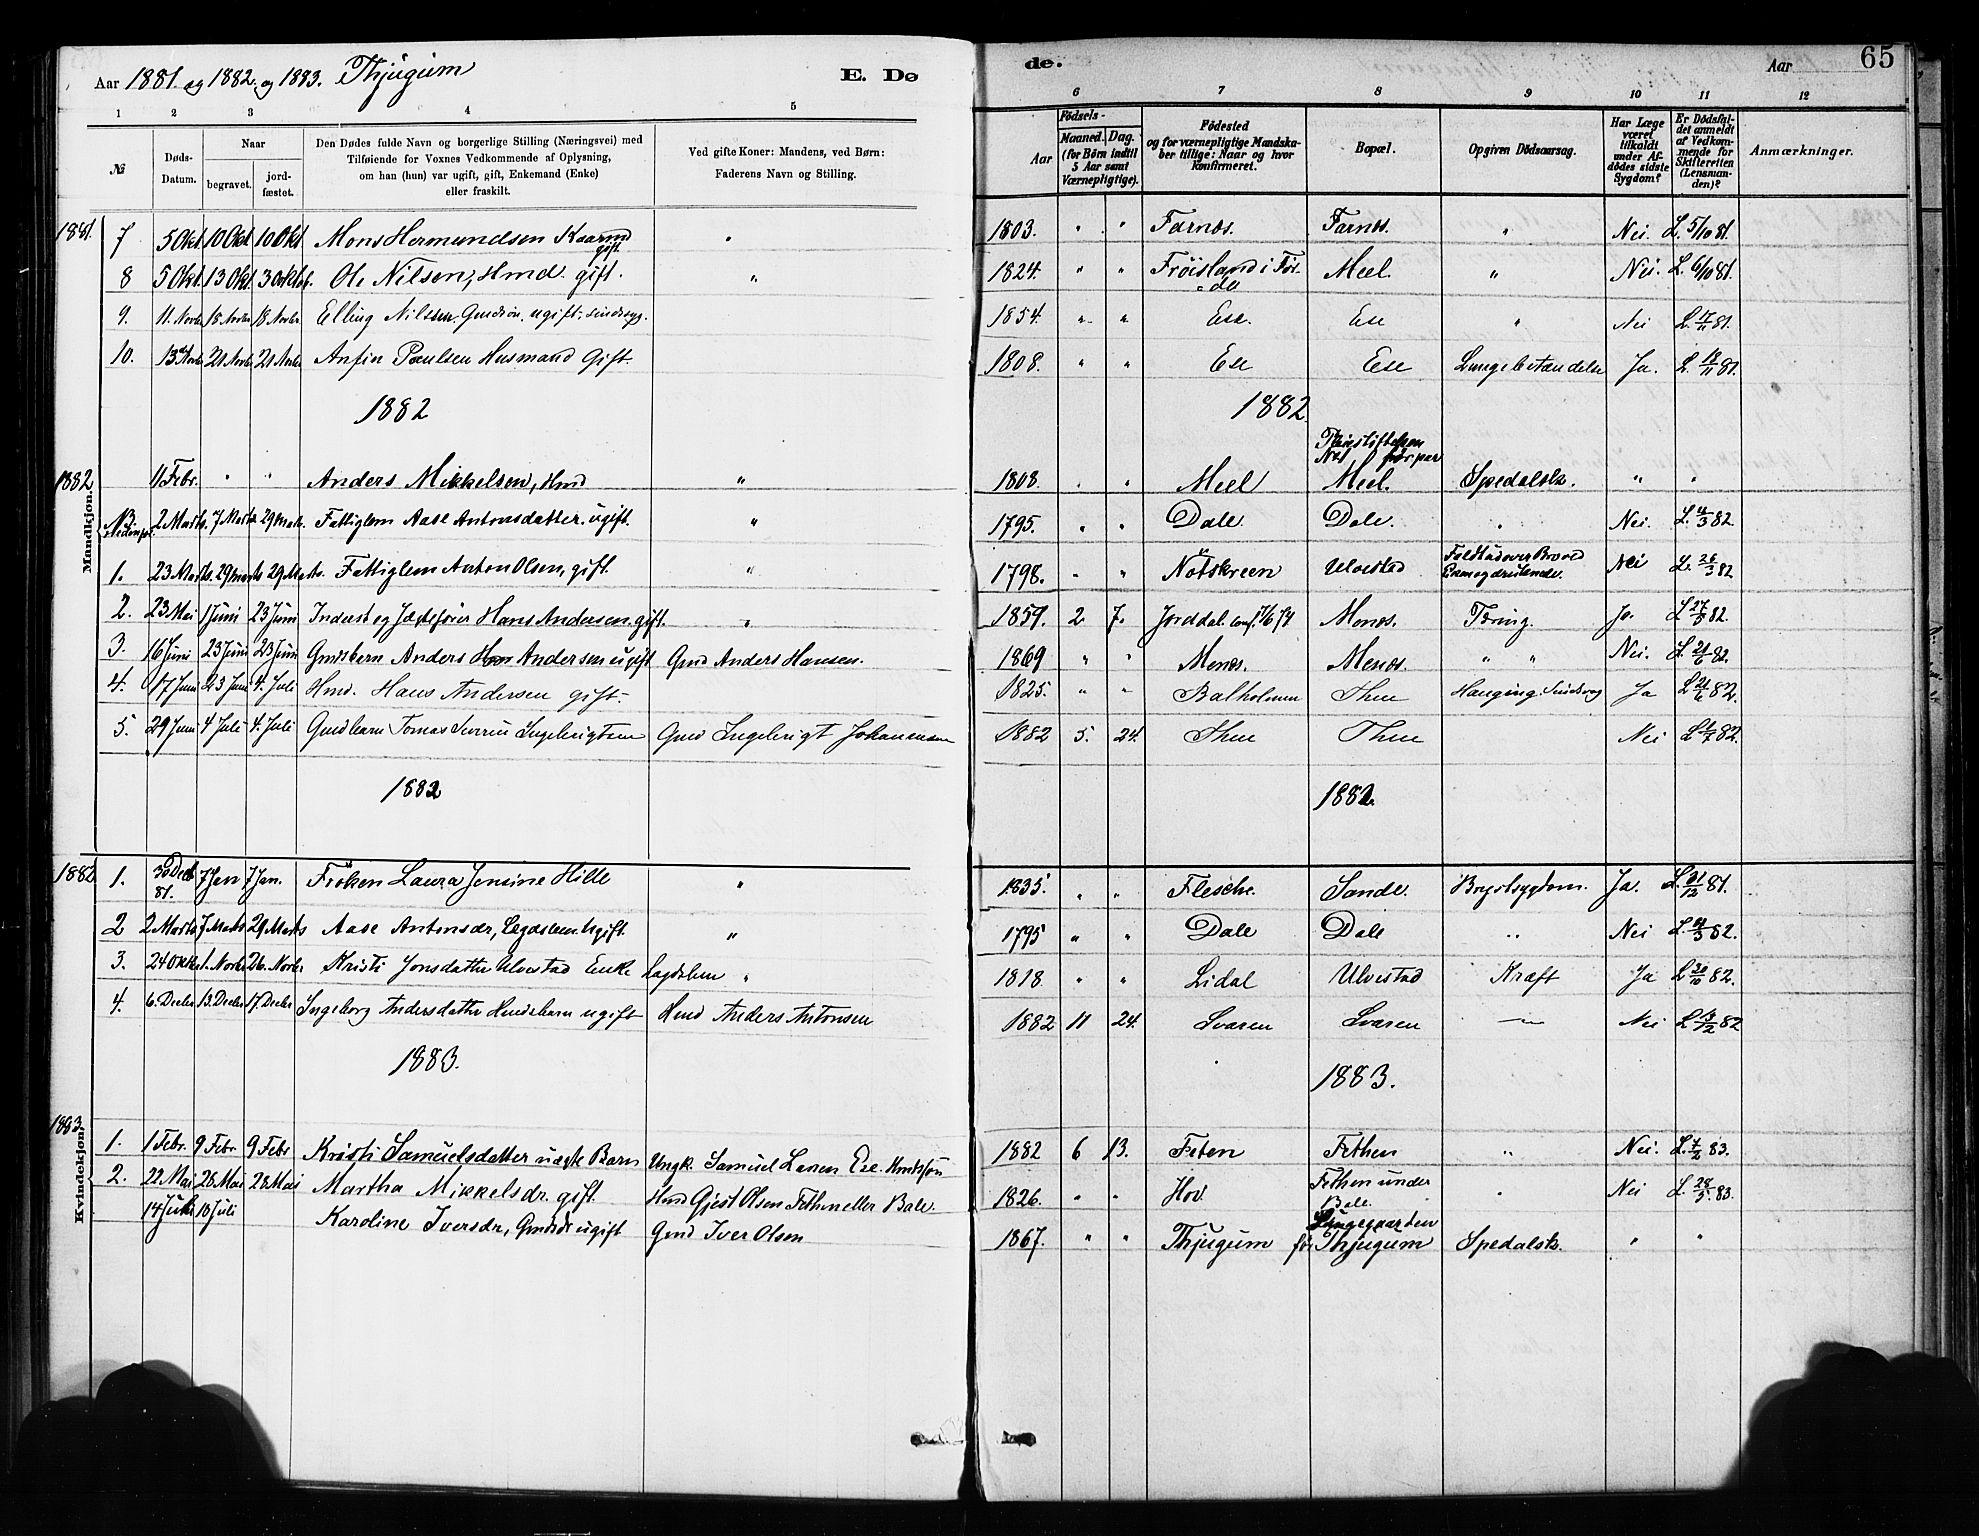 Aar 1881. og 1882. og 1883. Thjugum E. Dø de. Aar 65
1 2 3 4 5 6 7 8 9 10 11 12
№ Døds-Datum. Naar begravet. jord-fæstet.
Den Dødes fulde Navn og borgerlige Stilling (Næringsvei) med Tilføiende for Voxnes Vedkommende af Oplysning, om han (hun) var ugift, gift, Enkemand (Enke) eller fraskilt.
Ved gifte Koner: Mandens, ved Børn: Faderens Navn og Stilling.
Fødsels- Aar Maaned. Dag. (for Børn indtil 5 Aar samt Værnepligtige).
Fødested og for værnepligtige Mandskaber tillige: Naar og hvor konfirmeret.
Bopæl.
Opgiven Dødsaarsag.
Har Læge været tilkaldt under Afdødes sidste Sygdom?
Er Dødsfaldet anmeldt af Vedkommende for Skifteretten (Lensmanden)?
Anmærkninger.
Mandkjøn.
1881. 7 5 Okt. 10 Okt. 10 Okt. Mons Hermundsen Kaarmd gift. " 1803. " " Farnæs. Farnæs. " Nei L. 5/10 81.
8 5 Okt. 13 Okt. Ole Nilsen, Hmd. gift. " 1824. " " Fröisland i Förde Meel. " Nei. L. 6/10 81.
9. 11. Novbr 18 Novbr 18 Novbr. Elling Nilsen, Gmdsön, ugift, sindssyg. 1854. " " Ese. Ese " Nei L. 17/11 81.
10. 13 Novbr 21 Novbr 21 Novbr Anfin Poulsen Husmand Gift. 1808. " " Ese Ese Lungebetændelse Ja. L. 18/11 81.
1882 1882
1882 11 Febr. " " Anders Mikkelsen, Hmd " 1808. " " Meel Meel. Spedalsk. " "
NB. 2 Marts. 7 Marts 29 Marts. Fattiglem Aase Antonsdatter. ugift. " 1795. " " Dale. Dale. " Nei. L. 4/3 82
1. 23 Marts. 29 Marts 29 Marts. Fattiglem Anton Olsen, gift. " 1798. " " Nötskreen Ulvestad Nei L. 26/3 82
2. 23 Mai 1 Juni 23 Juni Inderst og Jægtefører Hans Andersen gift. " 1859. 2 7. Jorddal. conf. 7/6 74 Monæs. Tæring. Ja. L. 27/5 82.
3. 16 Juni 23 Juni 23 Juni Gmdsbarn Anders Andersen ugift Gmd Anders Hansen. 1869 " " Menæs. Menæs. " " Nei. L. 21/6 82.
4. 17 Juni 23 Juni 4. Juli Hmd. Hans Andersen gift. 1825. " " Balholmen Thue Hænging. Sindssvag Ja L. 21/6 82.
5. 29 Juni 4 Juli 4. Juli Gmdbarn Tomas Severin Ingebrigtsen Gmd Ingebrigt Johannesen 1882 5. 24. Thue Thue Nei L 4/7 82.
1882 1882.
Kvindekjøn.
1882 1. 30 Decb 81. 7 Jan 7 Jan. Fröken Laura Jensine Hille " 1835. " " Flesche Sande. Brystsygdom. Ja. L. 31/12 81.
2 2 Marts 7 Marts 29 Marts Aase Antonsdr, Lægdslem. Ugift. " 1795 " " Dale Dale " Nei L. 4/3 82.
3. 24 Oktbr 1. Novbr 26. Novbr Kristi Jonsdatter Ulvestad Enke Lægdslem " 1818. " " Lidal Ulvestad Kræft Ja L 30/10 82.
4. 6. Decbr 13. Decbr 17. Decbr Ingeborg Andersdatter Hmdsbarn ugift Hmd Anders Antonsen 1882 11 24. Svaren Svaren — Nei L 13/12 82
1883. 1883.
1883. 1. 1 Febr. 9 Febr. 9 Febr Kristi Samuelsdatter uægte Barn Ungk. Samuel Larsen Ese Hmdssøn 1882 6 13. Feten Fethen " Nei. L. 7/2 83.
2. 22. Mai 28 Mai 28 Mai Martha Mikkelsdr. gift. Hmd Gjest Olsen Fethen eller Bale. 1826. " " Hov. Fethen under Bale. " Nei L. 28/5. 83.
14 Juli 18 Juli Karoline Iversdr, Gmdsdr ugift Gmd Iver Olsen 1867. " " Thjugum Lungegaarden før Thjugum Spedalsk. " "